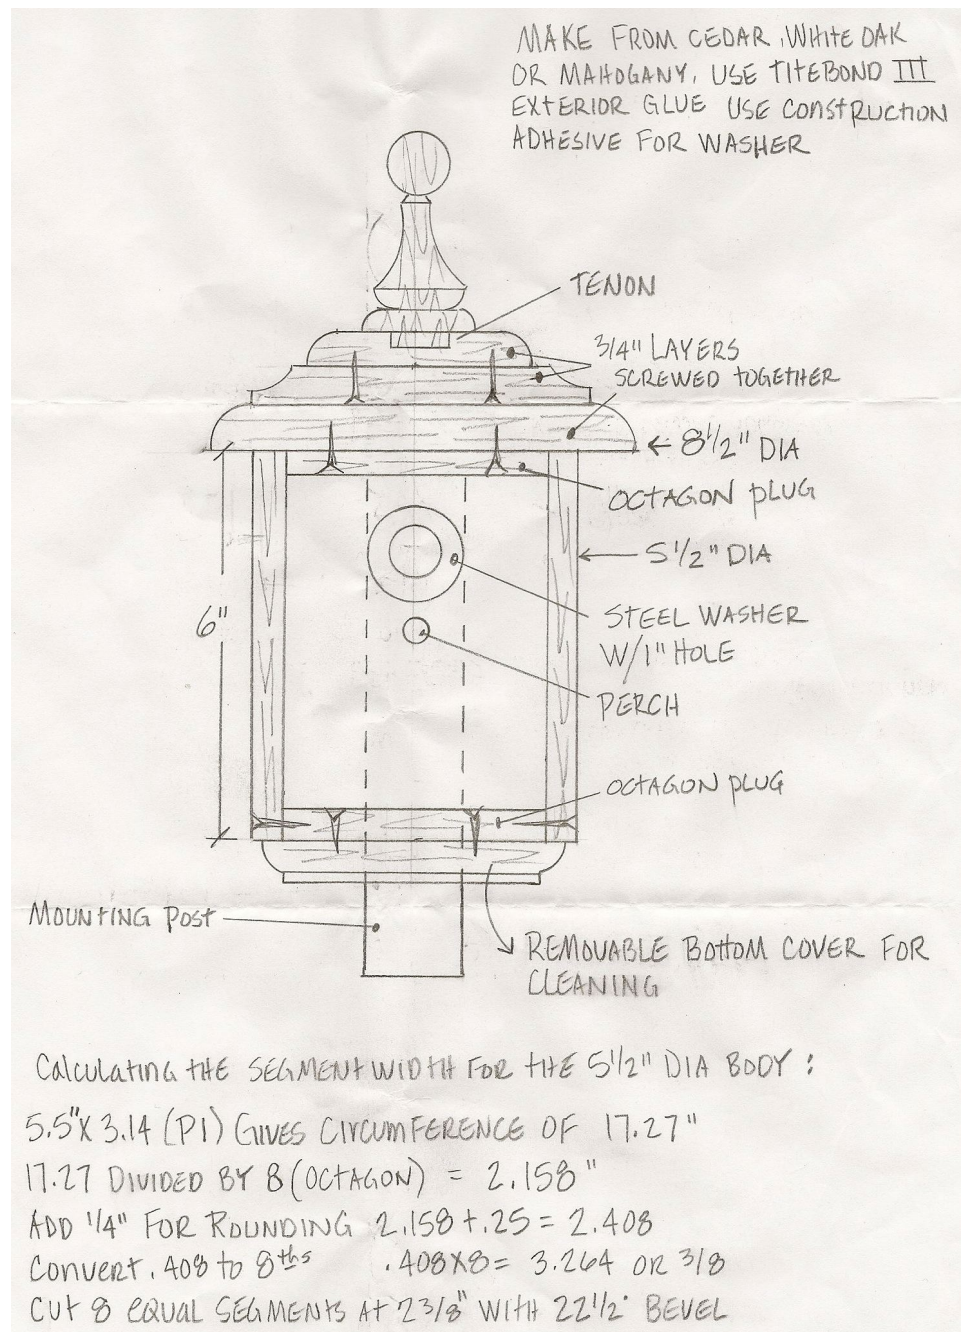 MAKE FROM CEDAR, WHITE OAK
OR MAHOGANY. USE TITEBOND III
EXTERIOR GLUE USE CONSTRUCTION
ADHESIVE FOR WASHER
TENON
3/4" LAYERS
SCREWED TOGETHER
← 8 1/2" DIA
OCTAGON PLUG
5 1/2" DIA
6"
STEEL WASHER
W/1" HOLE
PERCH
OCTAGON PLUG
MOUNTING POST
REMOVABLE BOTTOM COVER FOR
CLEANING
CALCULATING THE SEGMENT WIDTH FOR THE 5 1/2" DIA BODY:
5.5" X 3.14 (PI) GIVES CIRCUMFERENCE OF 17.27"
17.27 DIVIDED BY 8 (OCTAGON) = 2.158"
ADD 1/4" FOR ROUNDING 2.158 + .25 = 2.408
CONVERT .408 to 8ths .408X8 = 3.264 OR 3/8
CUT 8 EQUAL SEGMENTS AT 2 3/8" WITH 22 1/2° BEVEL